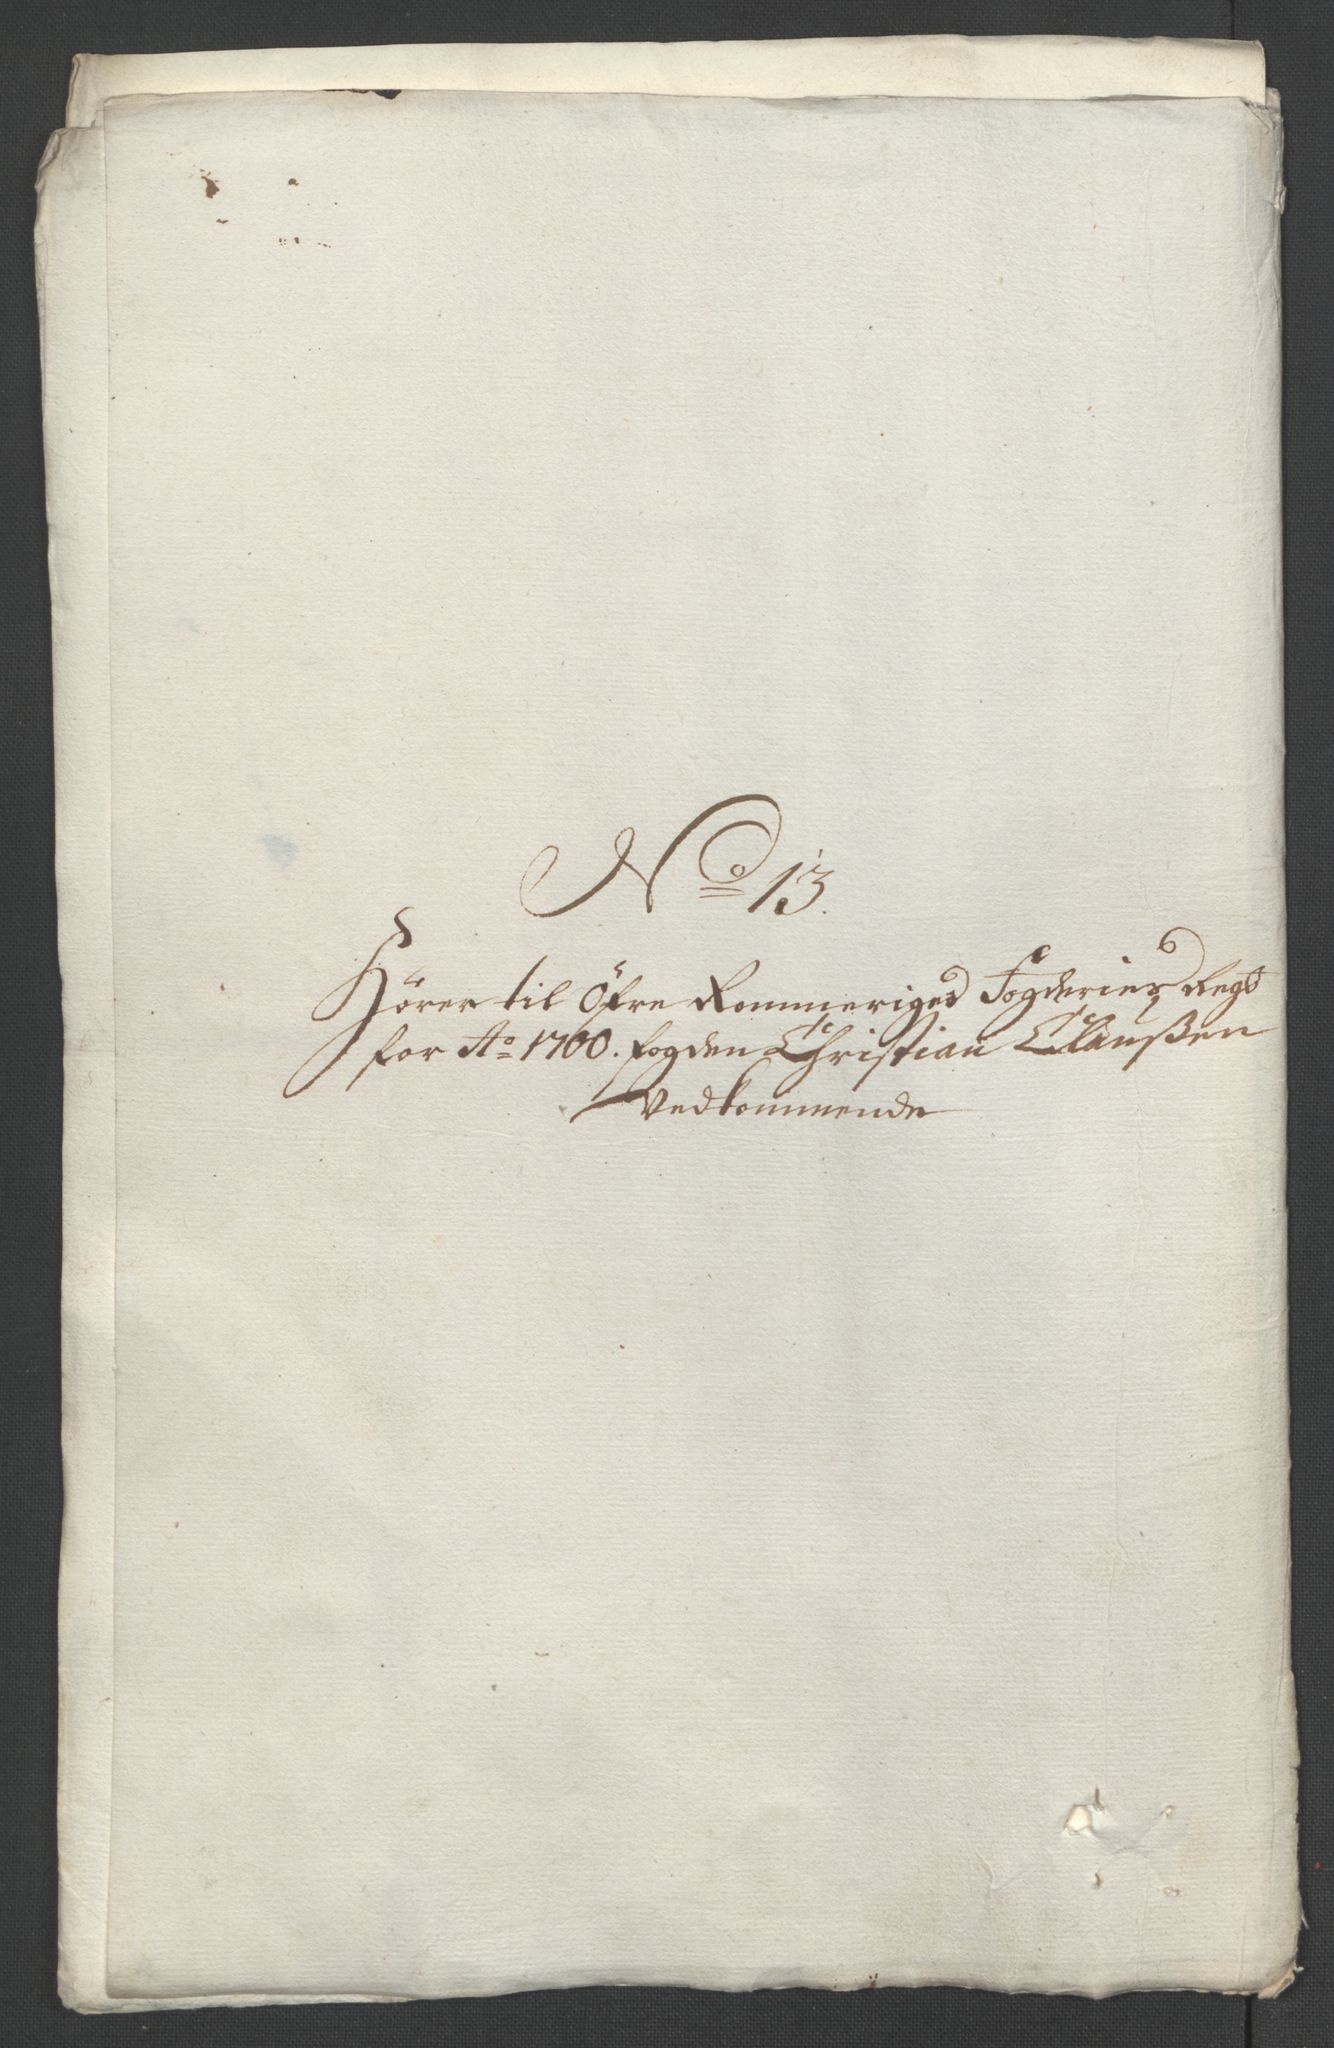 No 13.
Hörer til Öfre Rommeriges Fogderies Regs
for Ao 1700. fogden Christian Claußen
Vedkommende